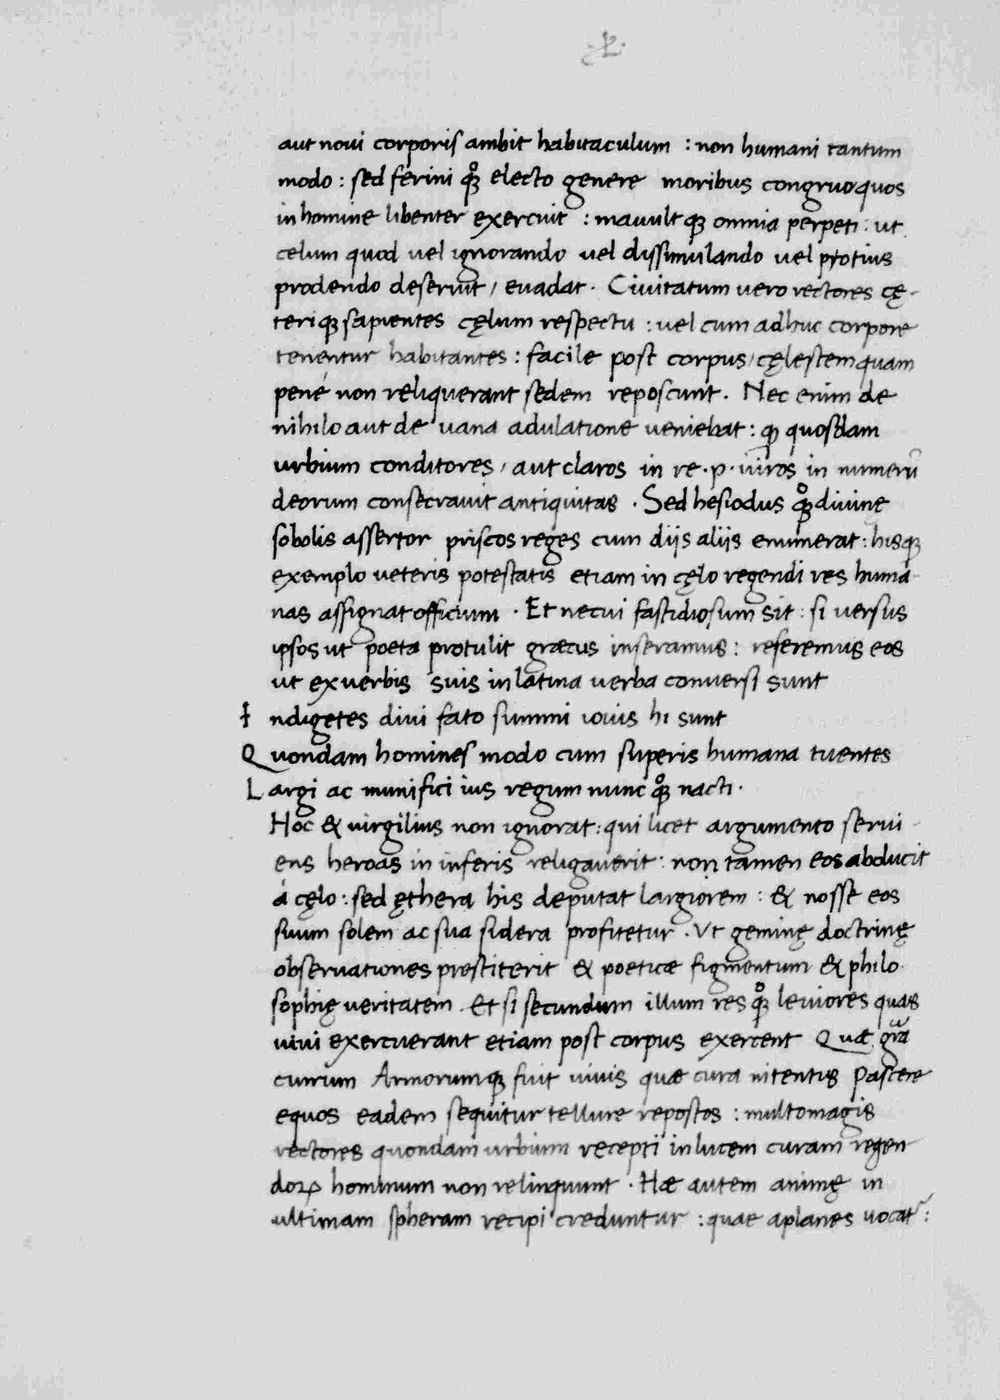 aut noui corporis ambit habitaculum : non humani tantum
modo : sed ferini qꝫ electo genere moribus congruo quos
in homine libenter exercuit : mauult qꝫ omnia perpeti : ut
celum quod uel ignorando uel dissimulando uel potius
prodendo deseruit / euadat . Ciuitatum uero rectores cę-
teriqꝫ sapientes cęlum respectu : uel cum adhuc corpore
tenentur habitantes : facile post corpus / cęlestem quam
pené non reliquerant sedem reposcunt . Nec enim de
nihilo aut de uana adulatione ueniebat : qꝫ quosdam
urbium conditores / aut claros in re . p . uiros in numerū
deorum consecrauit antiquitas . Sed hesiodus qꝫ diuinę
sobolis assertor priscos reges cum diis aliis enumerat : hisqꝫ
exemplo ueteris potestatis etiam in cęlo regendi res huma-
nas assignat officium . Et ne cui fastidiosum sit : si uersus
ipsos ut poeta protulit gręcus inseramus : referemus eos
ut ex uerbis suis in latina uerba conuersi sunt
I ndigetes diui fato summi iouis hi sunt
Q uondam homines modo cum superis humana tuentes
L argi ac munifici ius regum nunc qꝫ nacti .
Hoc & uirgilius non ignorat : qui licet argumento serui-
ens heroas in inferis religauerit : non tamen eos abducit
á cęlo : sed ęthera his deputat largiorem : & nosse eos
suum solem ac sua sidera profitetur . Ut geminę doctrinę
obseruationes prestiterit & poeticæ figmentum & philo-
sophię ueritatem . Et si secundum illum res qꝫ leuiores quas
uiui exercuerant etiam post corpus exercent Quæ gr̄a
curruum Armorumqꝫ fuit uiuis quæ cura nitentis pascere
equos eadem sequitur tellure repostos : multomagis
rectores quondam urbium recepti in lucem curam regen-
doꝝ hominum non relinquunt . Hæ autem animę in
ultimam spheram recipi creduntur : quae aplanes uocat᷑ :